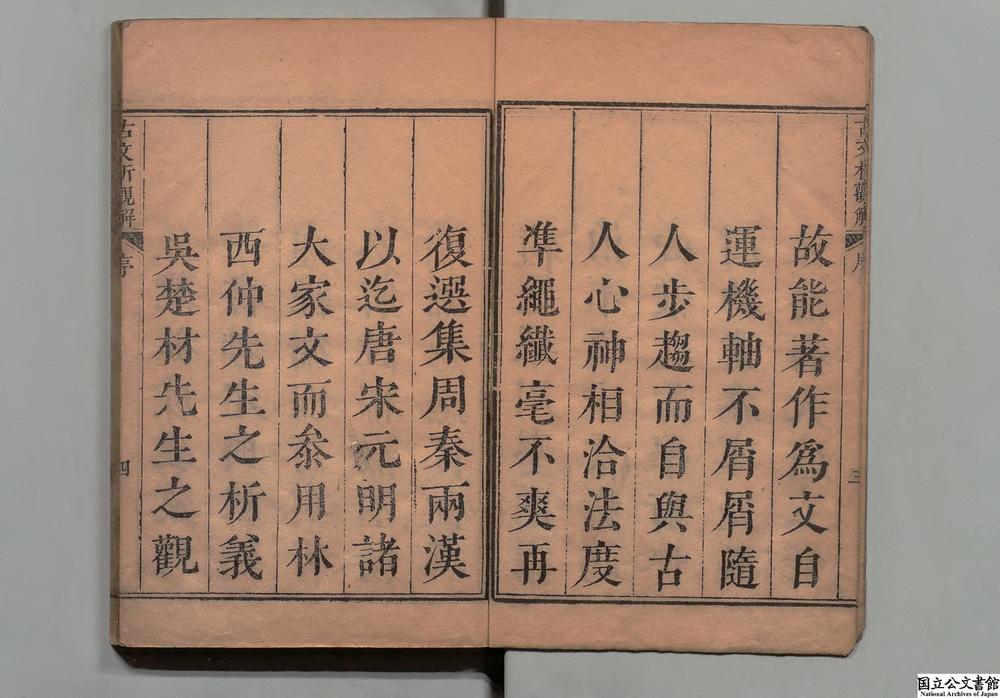 古文析觀解 序 三
故能著作爲文自
運機軸不屑屑隨
人步趨而自與古
人心神相洽法度
準繩纖毫不爽再
復選集周秦兩漢
以迄唐宋元明諸
大家文而叅用林
西仲先生之析義
吳楚材先生之觀
古文析觀解 序 四
国立公文書館
National Archives of Japan